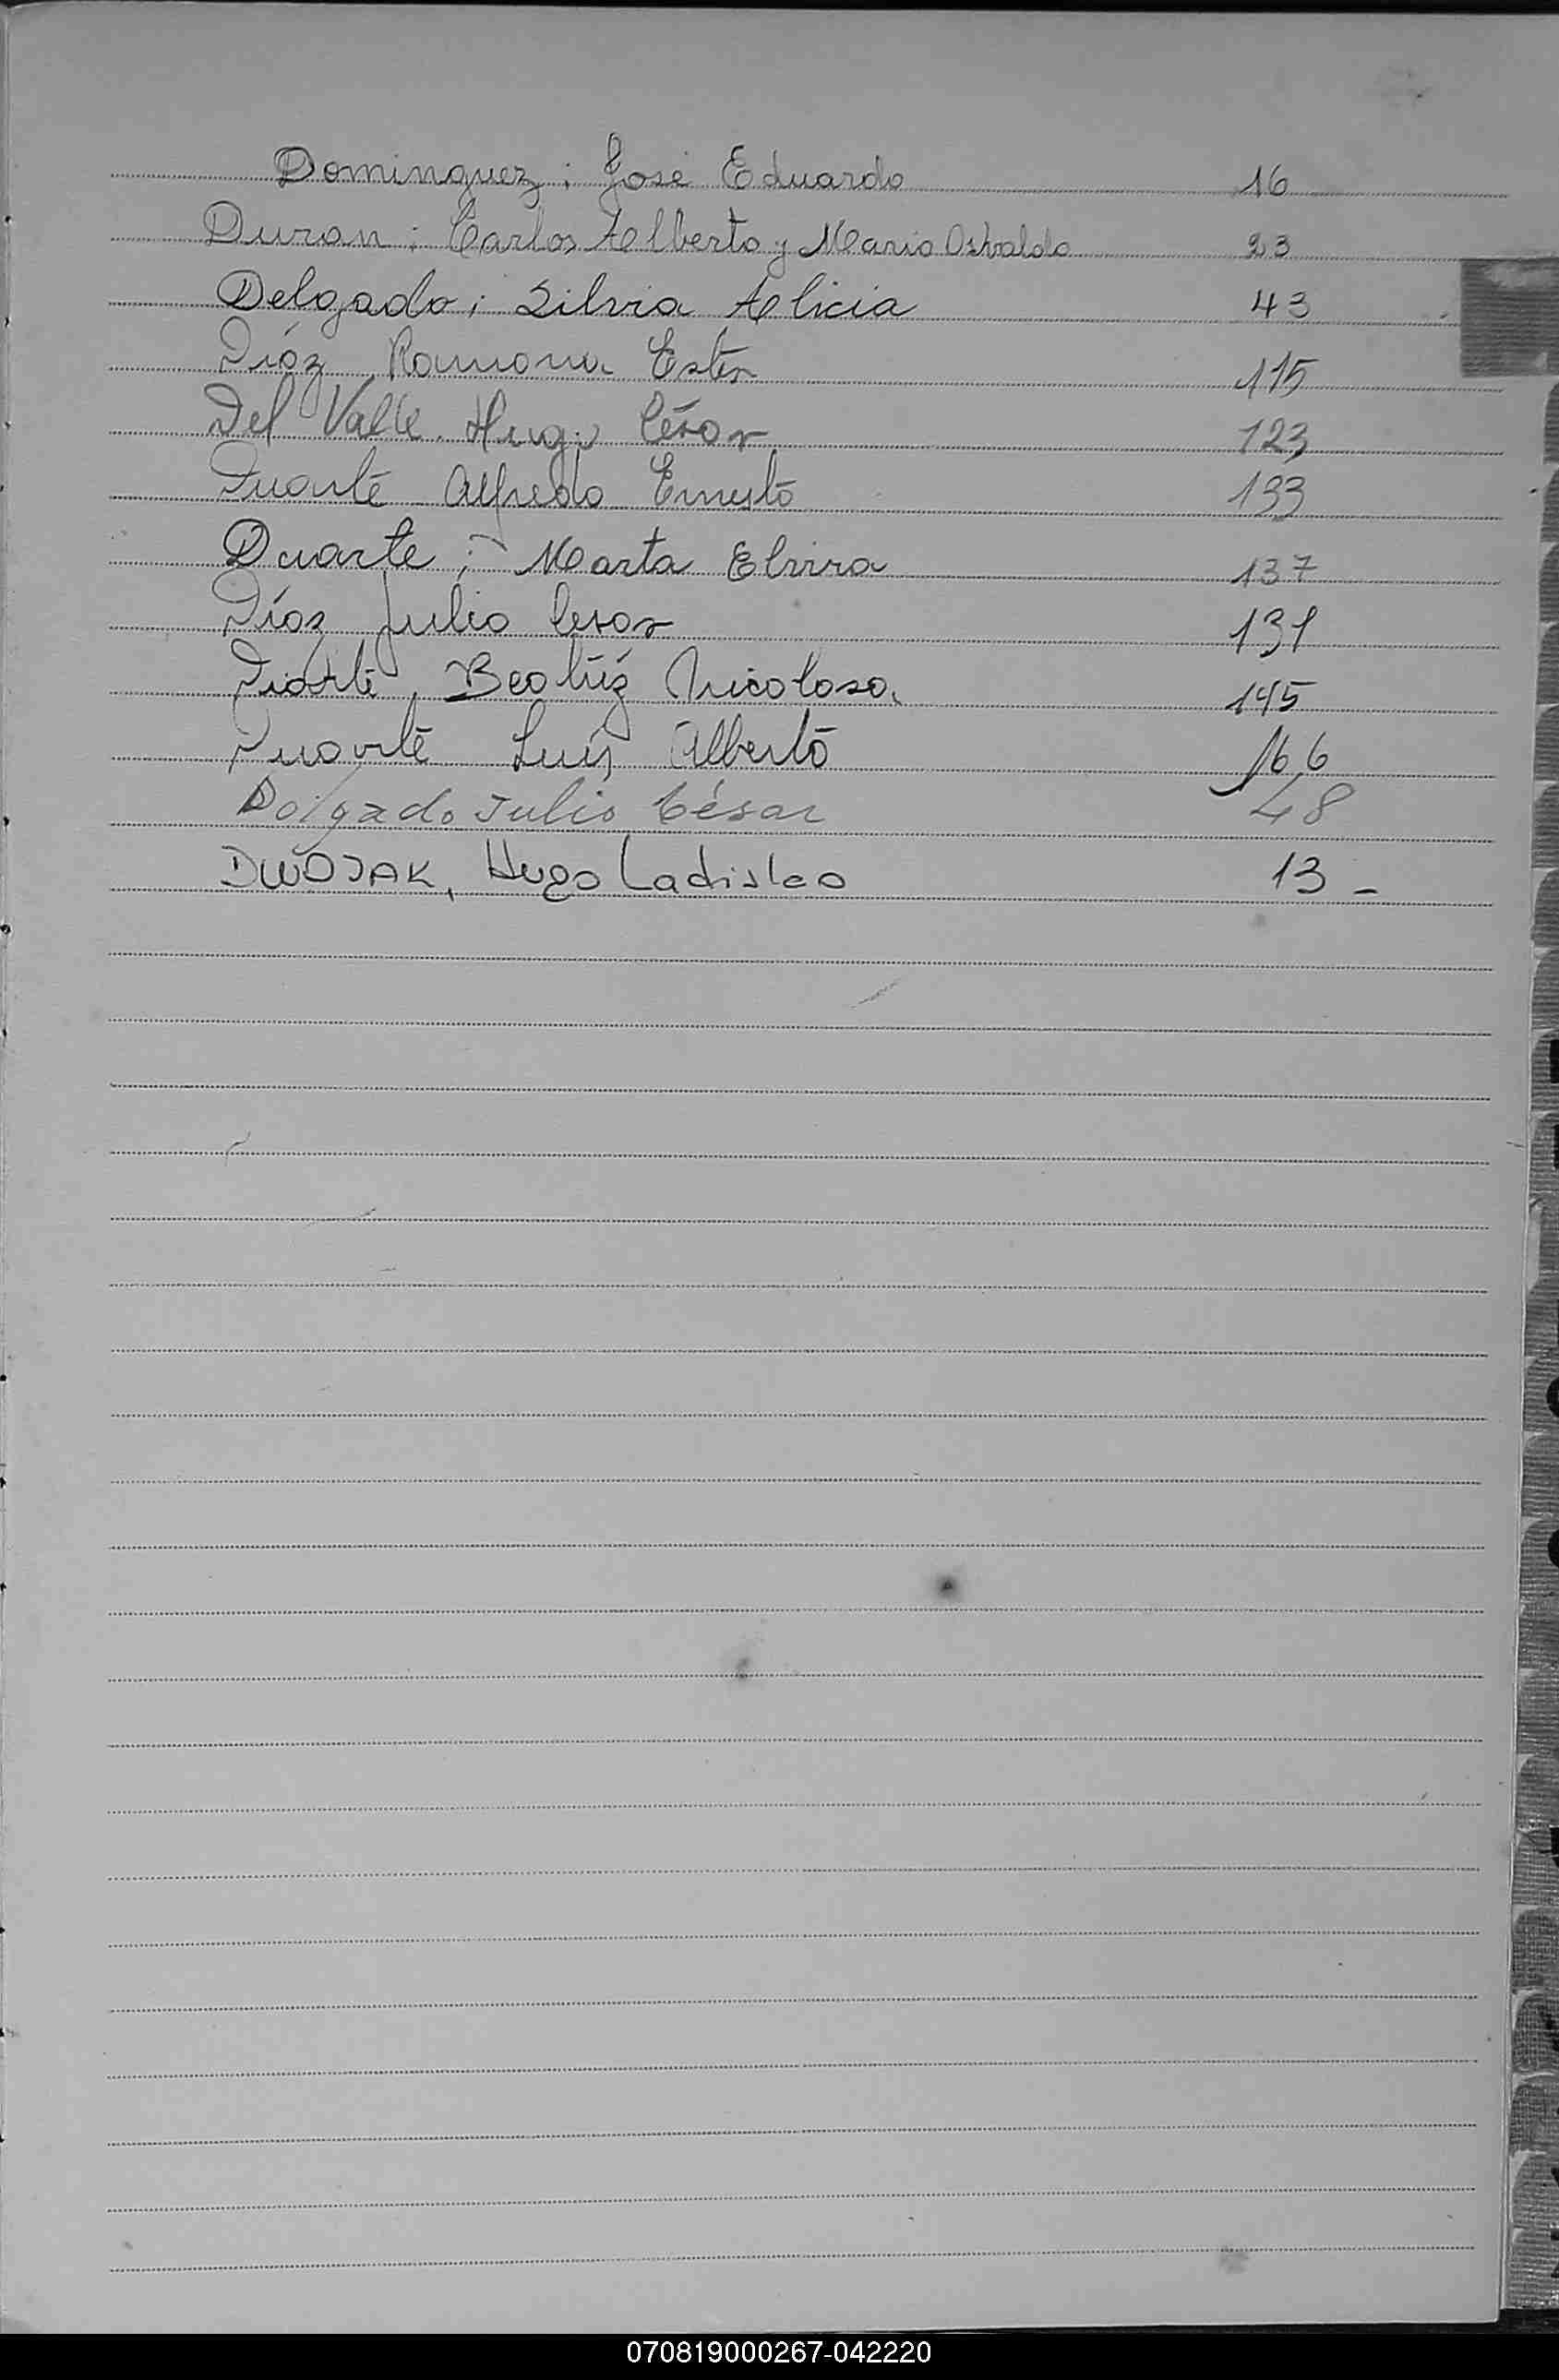 Dominguez; José Eduardo 16
Duran; Carlos Alberto y Mario Osvaldo 23
Delgado; Silvia Alicia 43
Díaz Ramona Ester 115
Del Valle. Hugo César 123
Duarte Alfredo Ernesto 133
Duarte; Marta Elvira 137
Díaz Julio Cesar 131
Duarte, Beatríz Nicolasa 145
Duarte Luis Alberto 166
Dolgado Julio César 48
DWOJAK, Hugo Ladislao 13 -
070819000267-042220